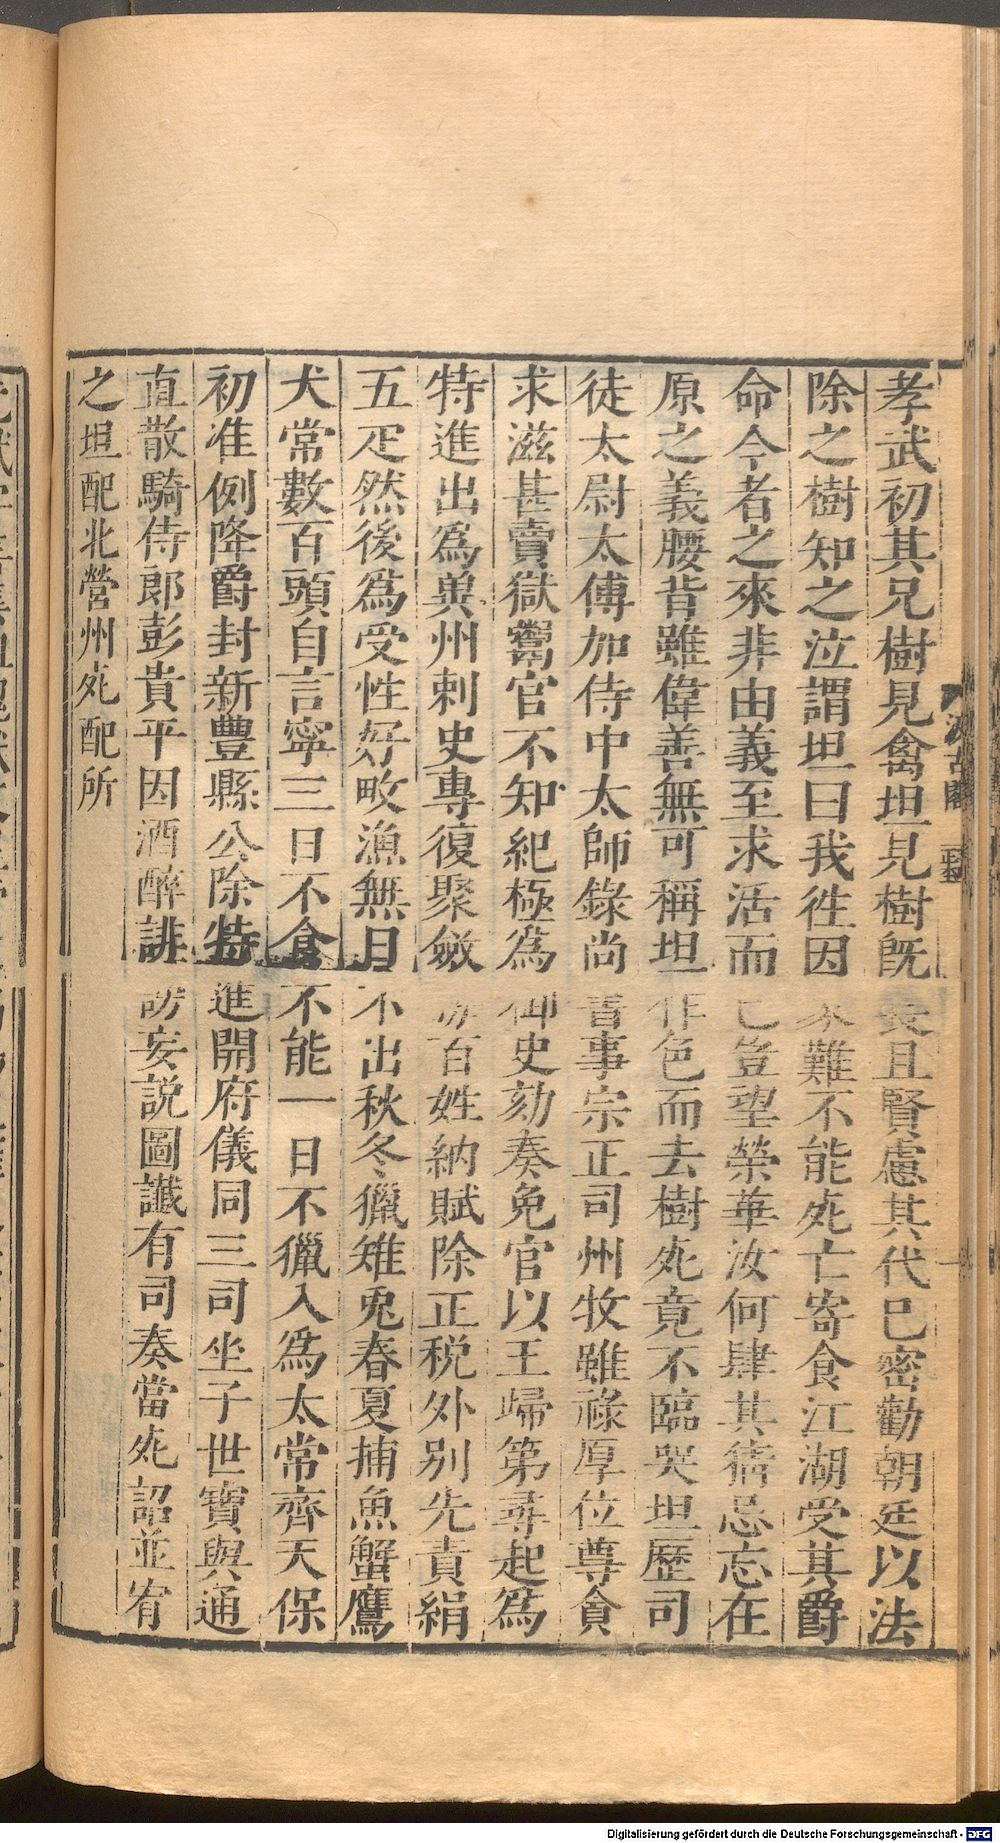 孝武初其兄樹見禽坦見樹既長且賢慮其代已密勸朝廷以法
除之樹知之泣謂坦曰我徃因家難不能死亡寄食江湖受其爵
命今者之來非由義至求活而已豈望榮華汝何肆其猜忌忘在
原之義腰背雖偉善無可稱坦作色而去樹死竟不臨哭坦歷司
徒太尉太傅加侍中太師錄尚書事宗正司州牧雖祿厚位尊貪
求滋甚賣獄鬻官不知紀極爲御史劾奏免官以王歸第尋起爲
特進出爲兾州刺史專復聚斂 百姓納賦除正税外别先責絹
五疋然後爲受性好畋漁無日不出秋冬獵雉兎春夏捕魚蟹鷹
犬常數百頭自言寧三日不食不能一日不獵入爲太常齊天保
初准例降爵封新豐縣公除特進開府儀同三司坐子世寶與通
直散騎侍郎彭貴平因酒醉誹謗妄説圖讖有司奏當死詔並宥
之坦配北營州死配所
汲古閣
Digitalisierung gefördert durch die Deutsche Forschungsgemeinschaft - DFG